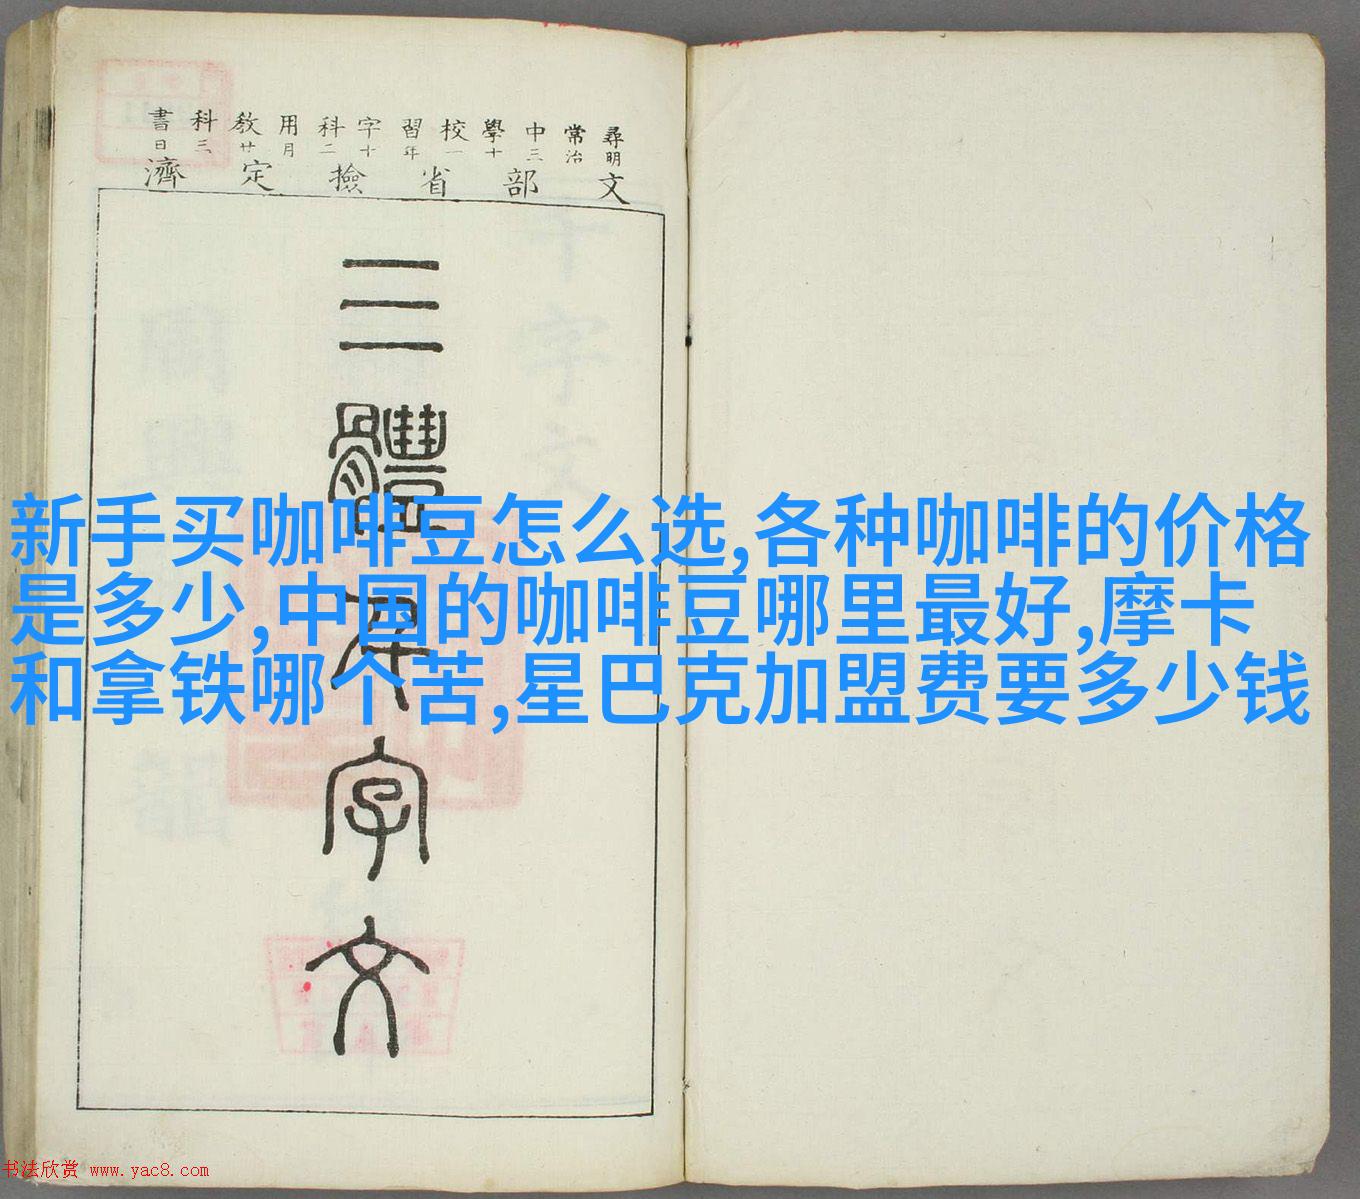 尋常中學校習字科用教科書
明治三十一年十二月廿三日
文部省撿定濟
三體千字文
新手买咖啡豆怎么选,各种咖啡的价格
是多少,中国的咖啡豆哪里最好,摩卡
和拿铁哪个苦,星巴克加盟费要多少钱
书法欣赏 www.yac8.com